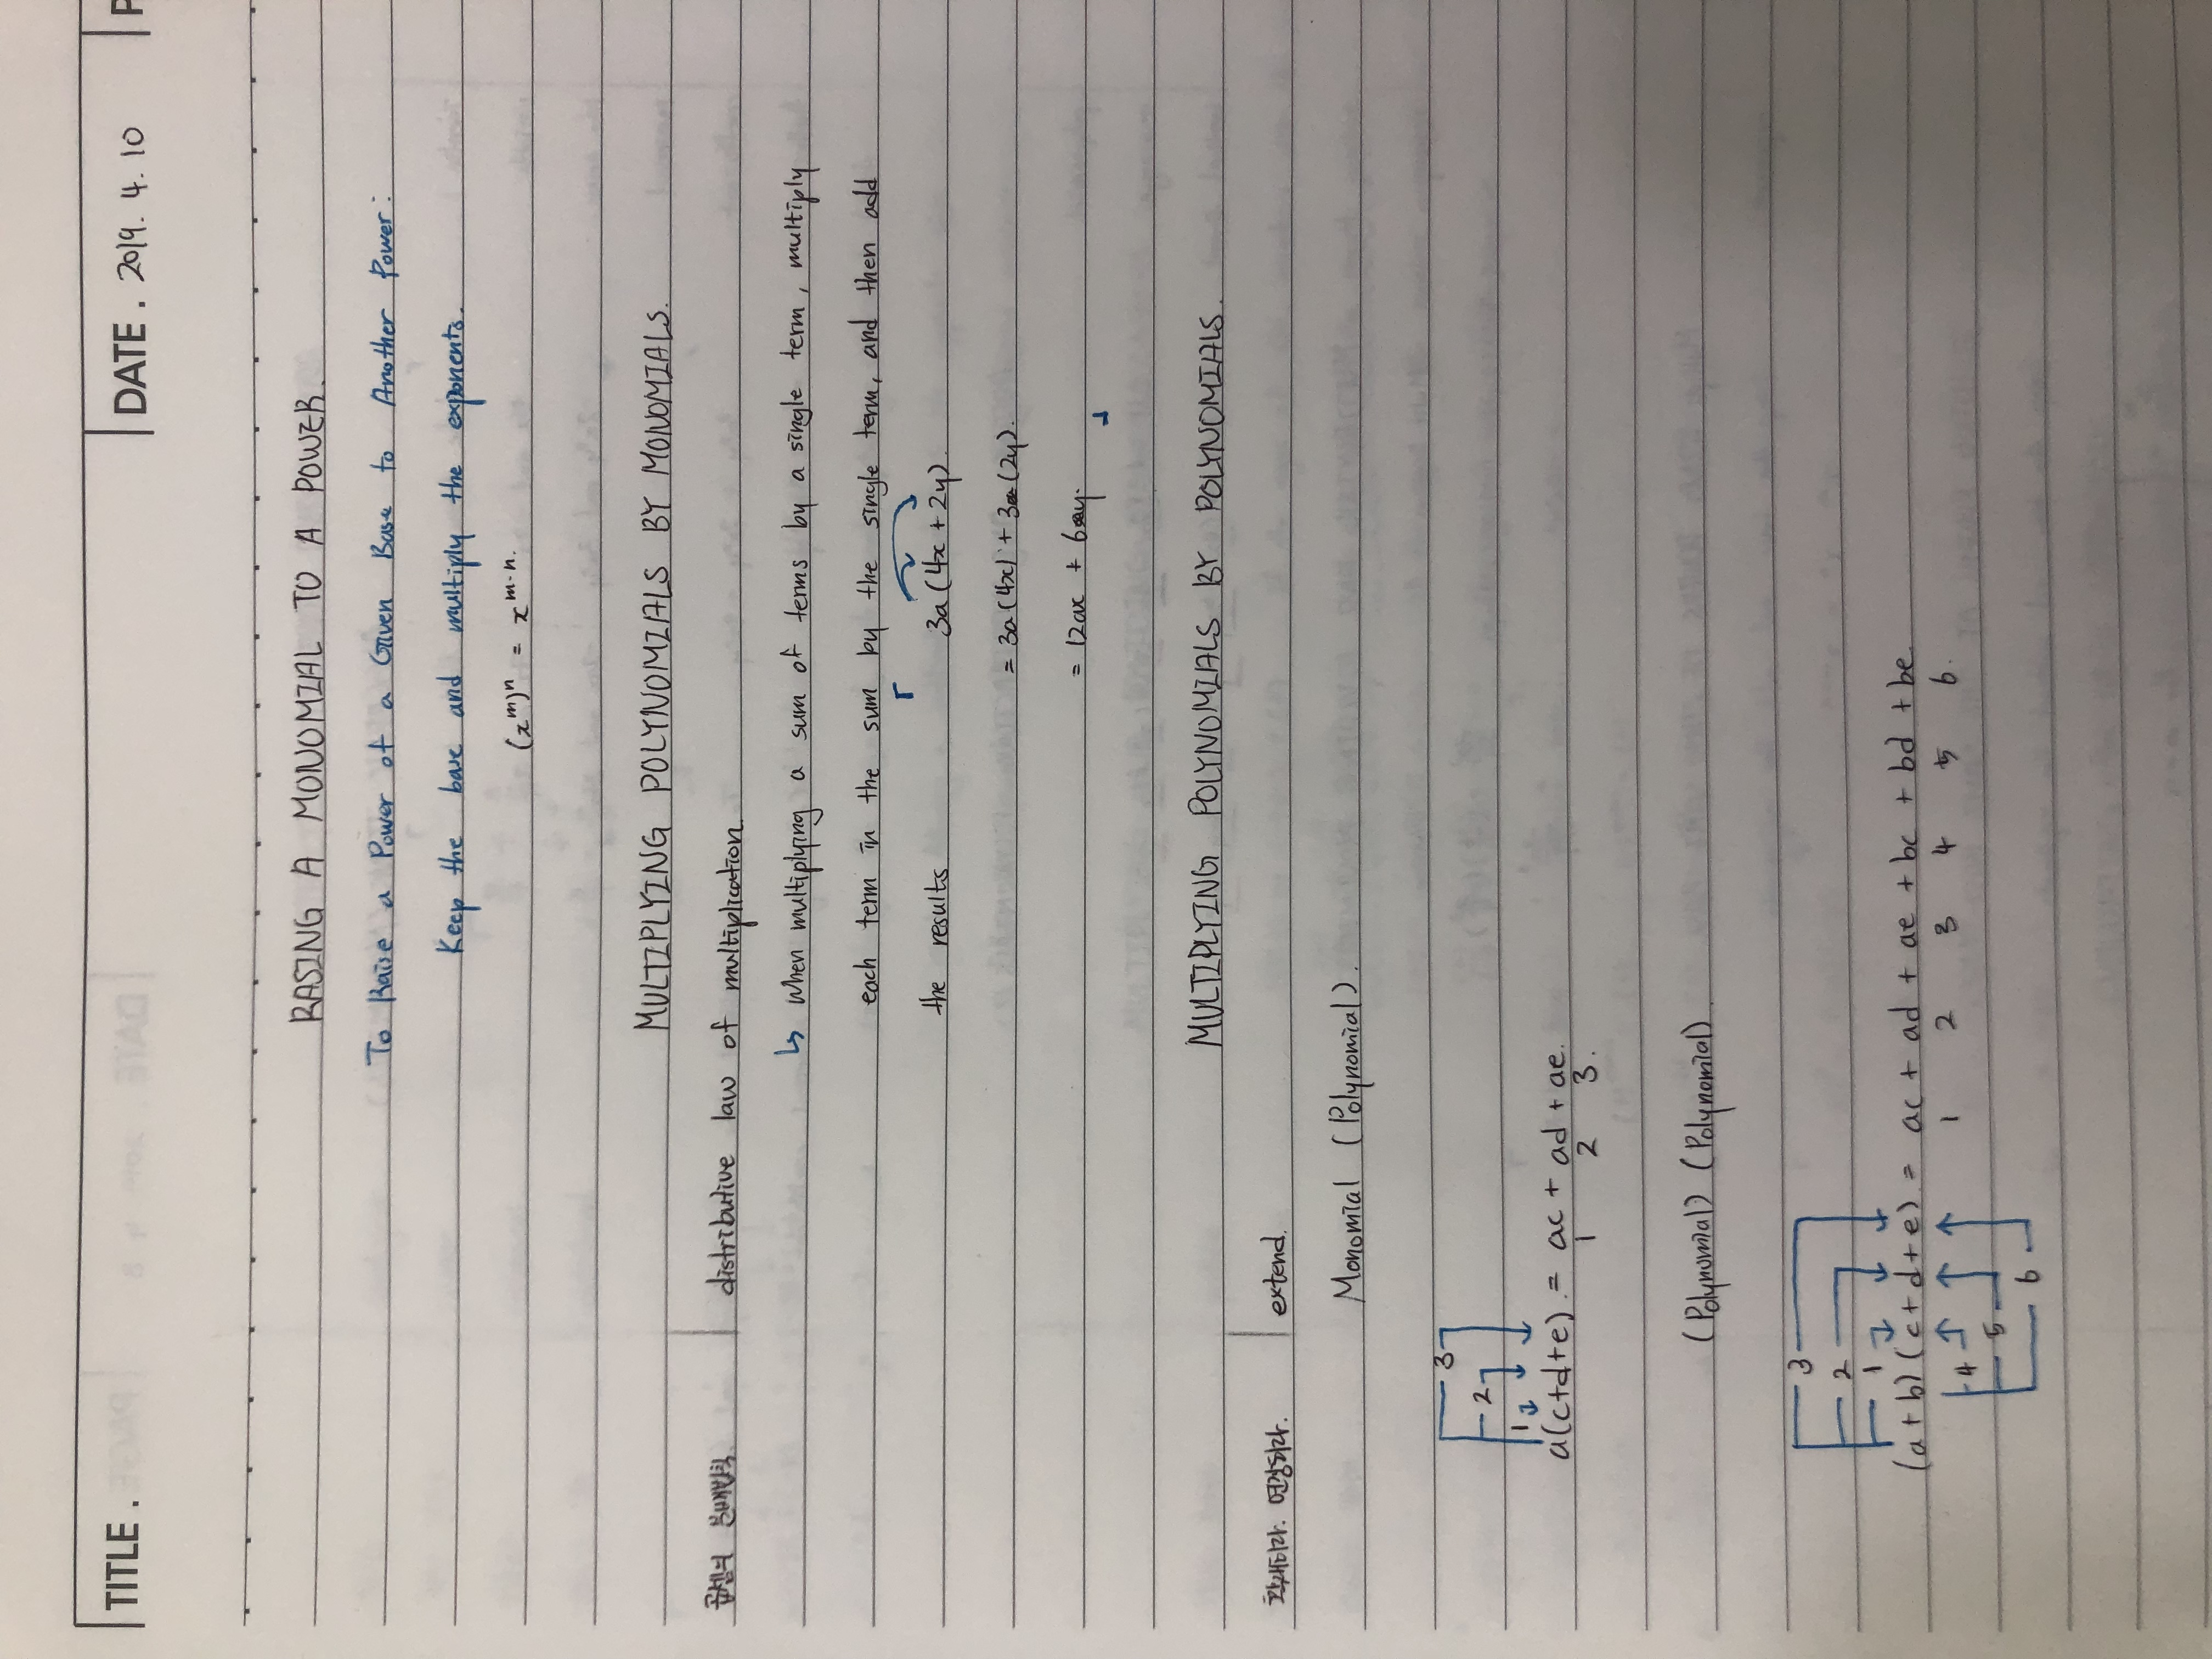 TITLE.
DATE. 2019. 4. 10
P
RASING A MONOMIAL TO A POWER.
To Raise a Power of a Given Base to Another Power:
Keep the base and multiply the exponents.
(x^m)^n = x^m·n.
MULTIPLYING POLYNOMIALS BY MONOMIALS.
곱셈의 분배법칙 distributive law of multiplication.
↳ When multiplying a sum of terms by a single term, multiply
each term in the sum by the single term, and then add
the results
3a(4x+2y).
= 3a(4x) + 3a(2y).
= 12ax + 6ay.
MULTIPLYING POLYNOMIALS BY POLYNOMIALS.
확대하다. 연장하다. extend.
Monomial (Polynomial).
3
2
1
a(c+d+e). = ac + ad + ae.
1 2 3.
(Polynomial) (Polynomial)
3
2
1
(a+b)(c+d+e) = ac + ad + ae + bc + bd + be.
4 1 2 3 4 5 6.
5
6